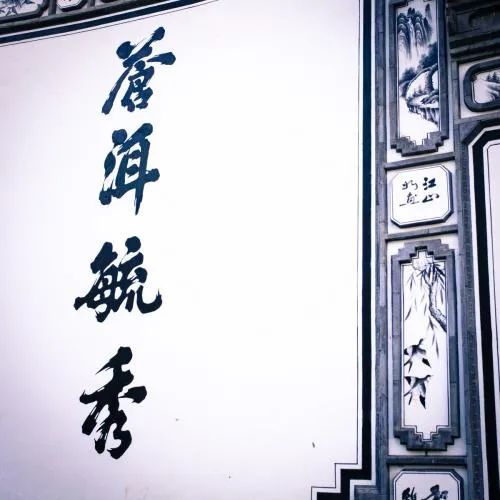 蒼洱毓秀
江山
如画